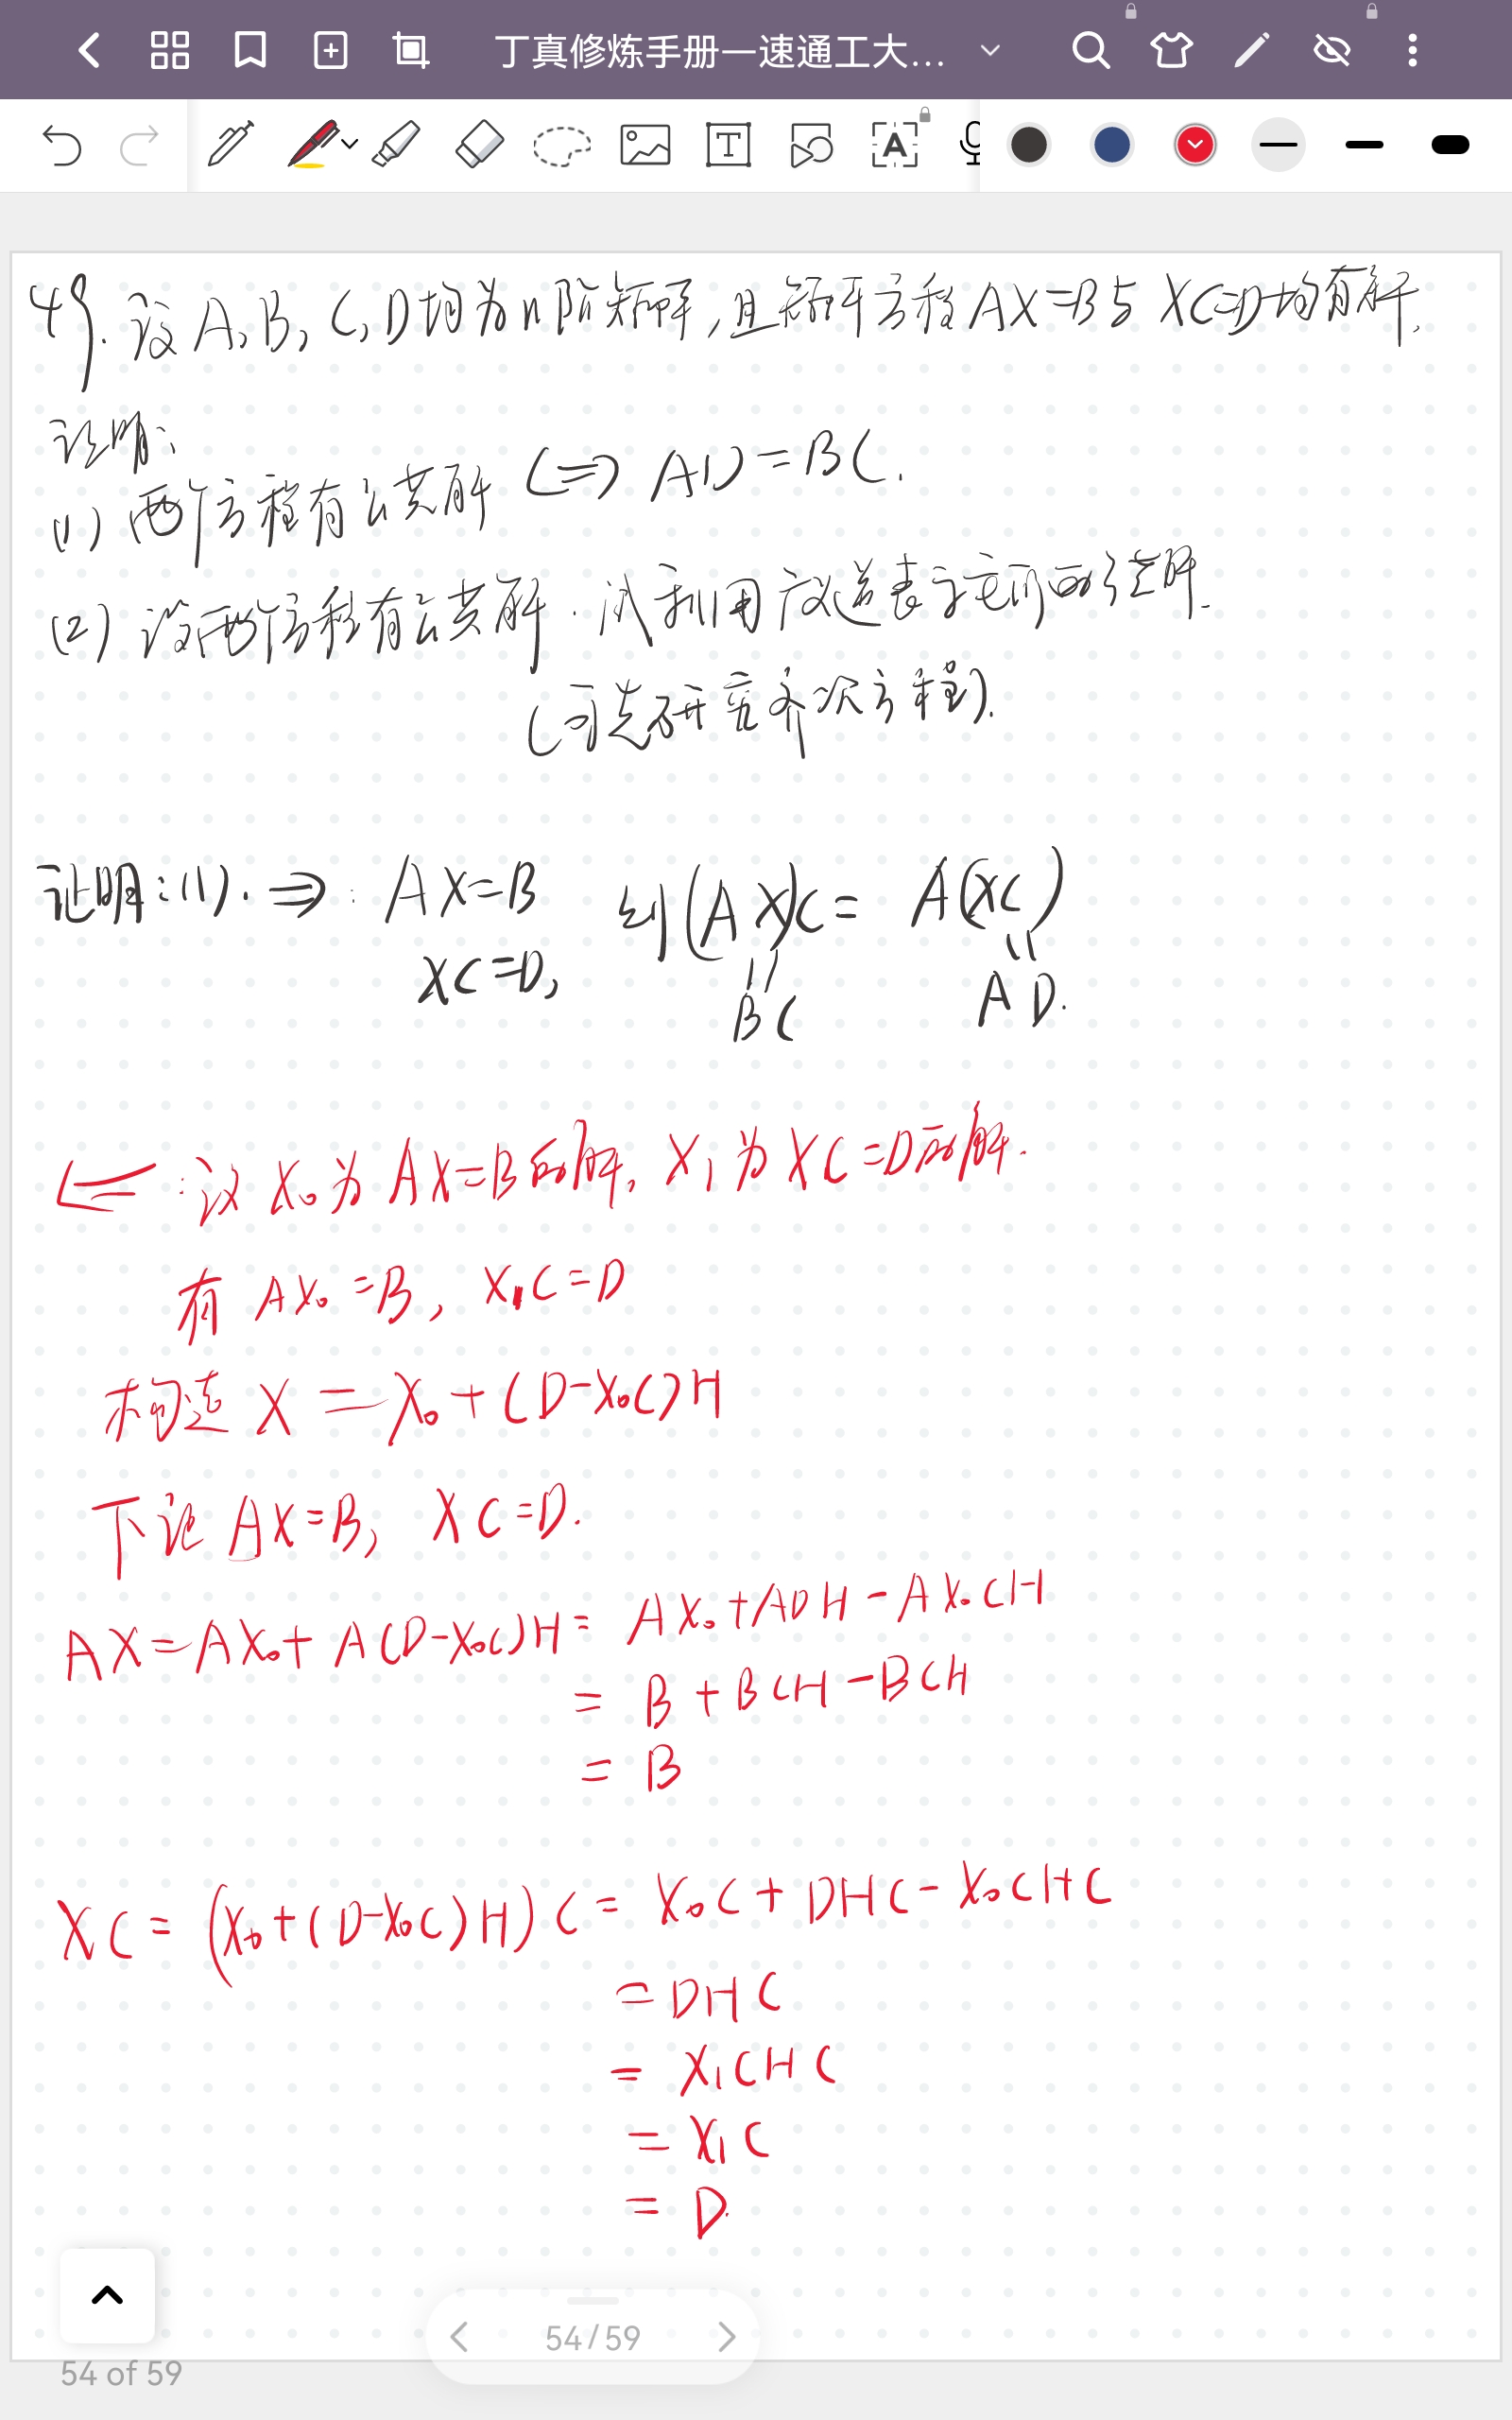 丁真修炼手册—速通工大...
49. 设A, B, C, D均为n阶矩阵, 且矩阵方程AX=B与XC=D均有解.
证明:
(1) 两个方程有公共解 <=> AD=BC.
(2) 设两个方程有公共解. 试利用广义逆表示它们的公共解.
(可先研究齐次方程).
证明:(1). ⇒: AX=B 则(AX)C= A(XC)
XC=D, BC AD.
⇐: 设X₀为AX=B的解, X₁为XC=D的解.
有 AX₀=B, X₁C=D
构造 X=X₀+(D-X₀C)H
下证 AX=B, XC=D.
AX=AX₀+A(D-X₀C)H= AX₀+ADH-AX₀CH
= B+BCH-BCH
= B
XC= (X₀+(D-X₀C)H)C= X₀C+DHC-X₀CHC
=DHC
= X₁CHC
= X₁C
= D.
54/59
54 of 59